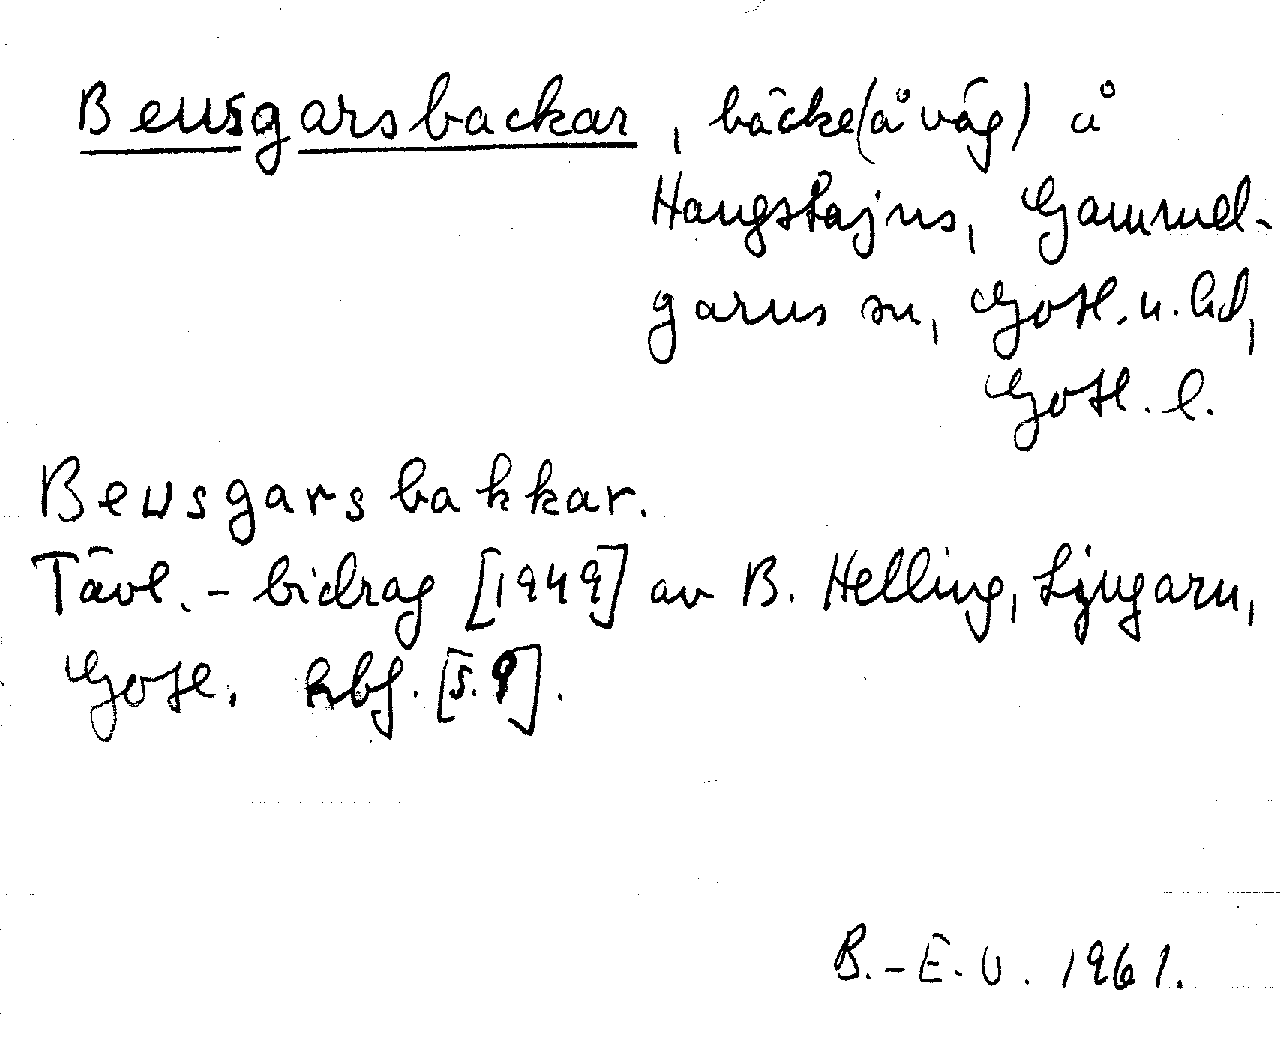 Beusgarsbackar, backe (å väg) å
Haugstajns, Gammel-
garns sn, Gotl. n. hd,
Gotl. l.
Beusgarsbakkar.
Tävl.-bidrag [1949] av B. Helling, Ljugarn,
Gotl. hbf. [s.9].
B.-E. U. 1961.